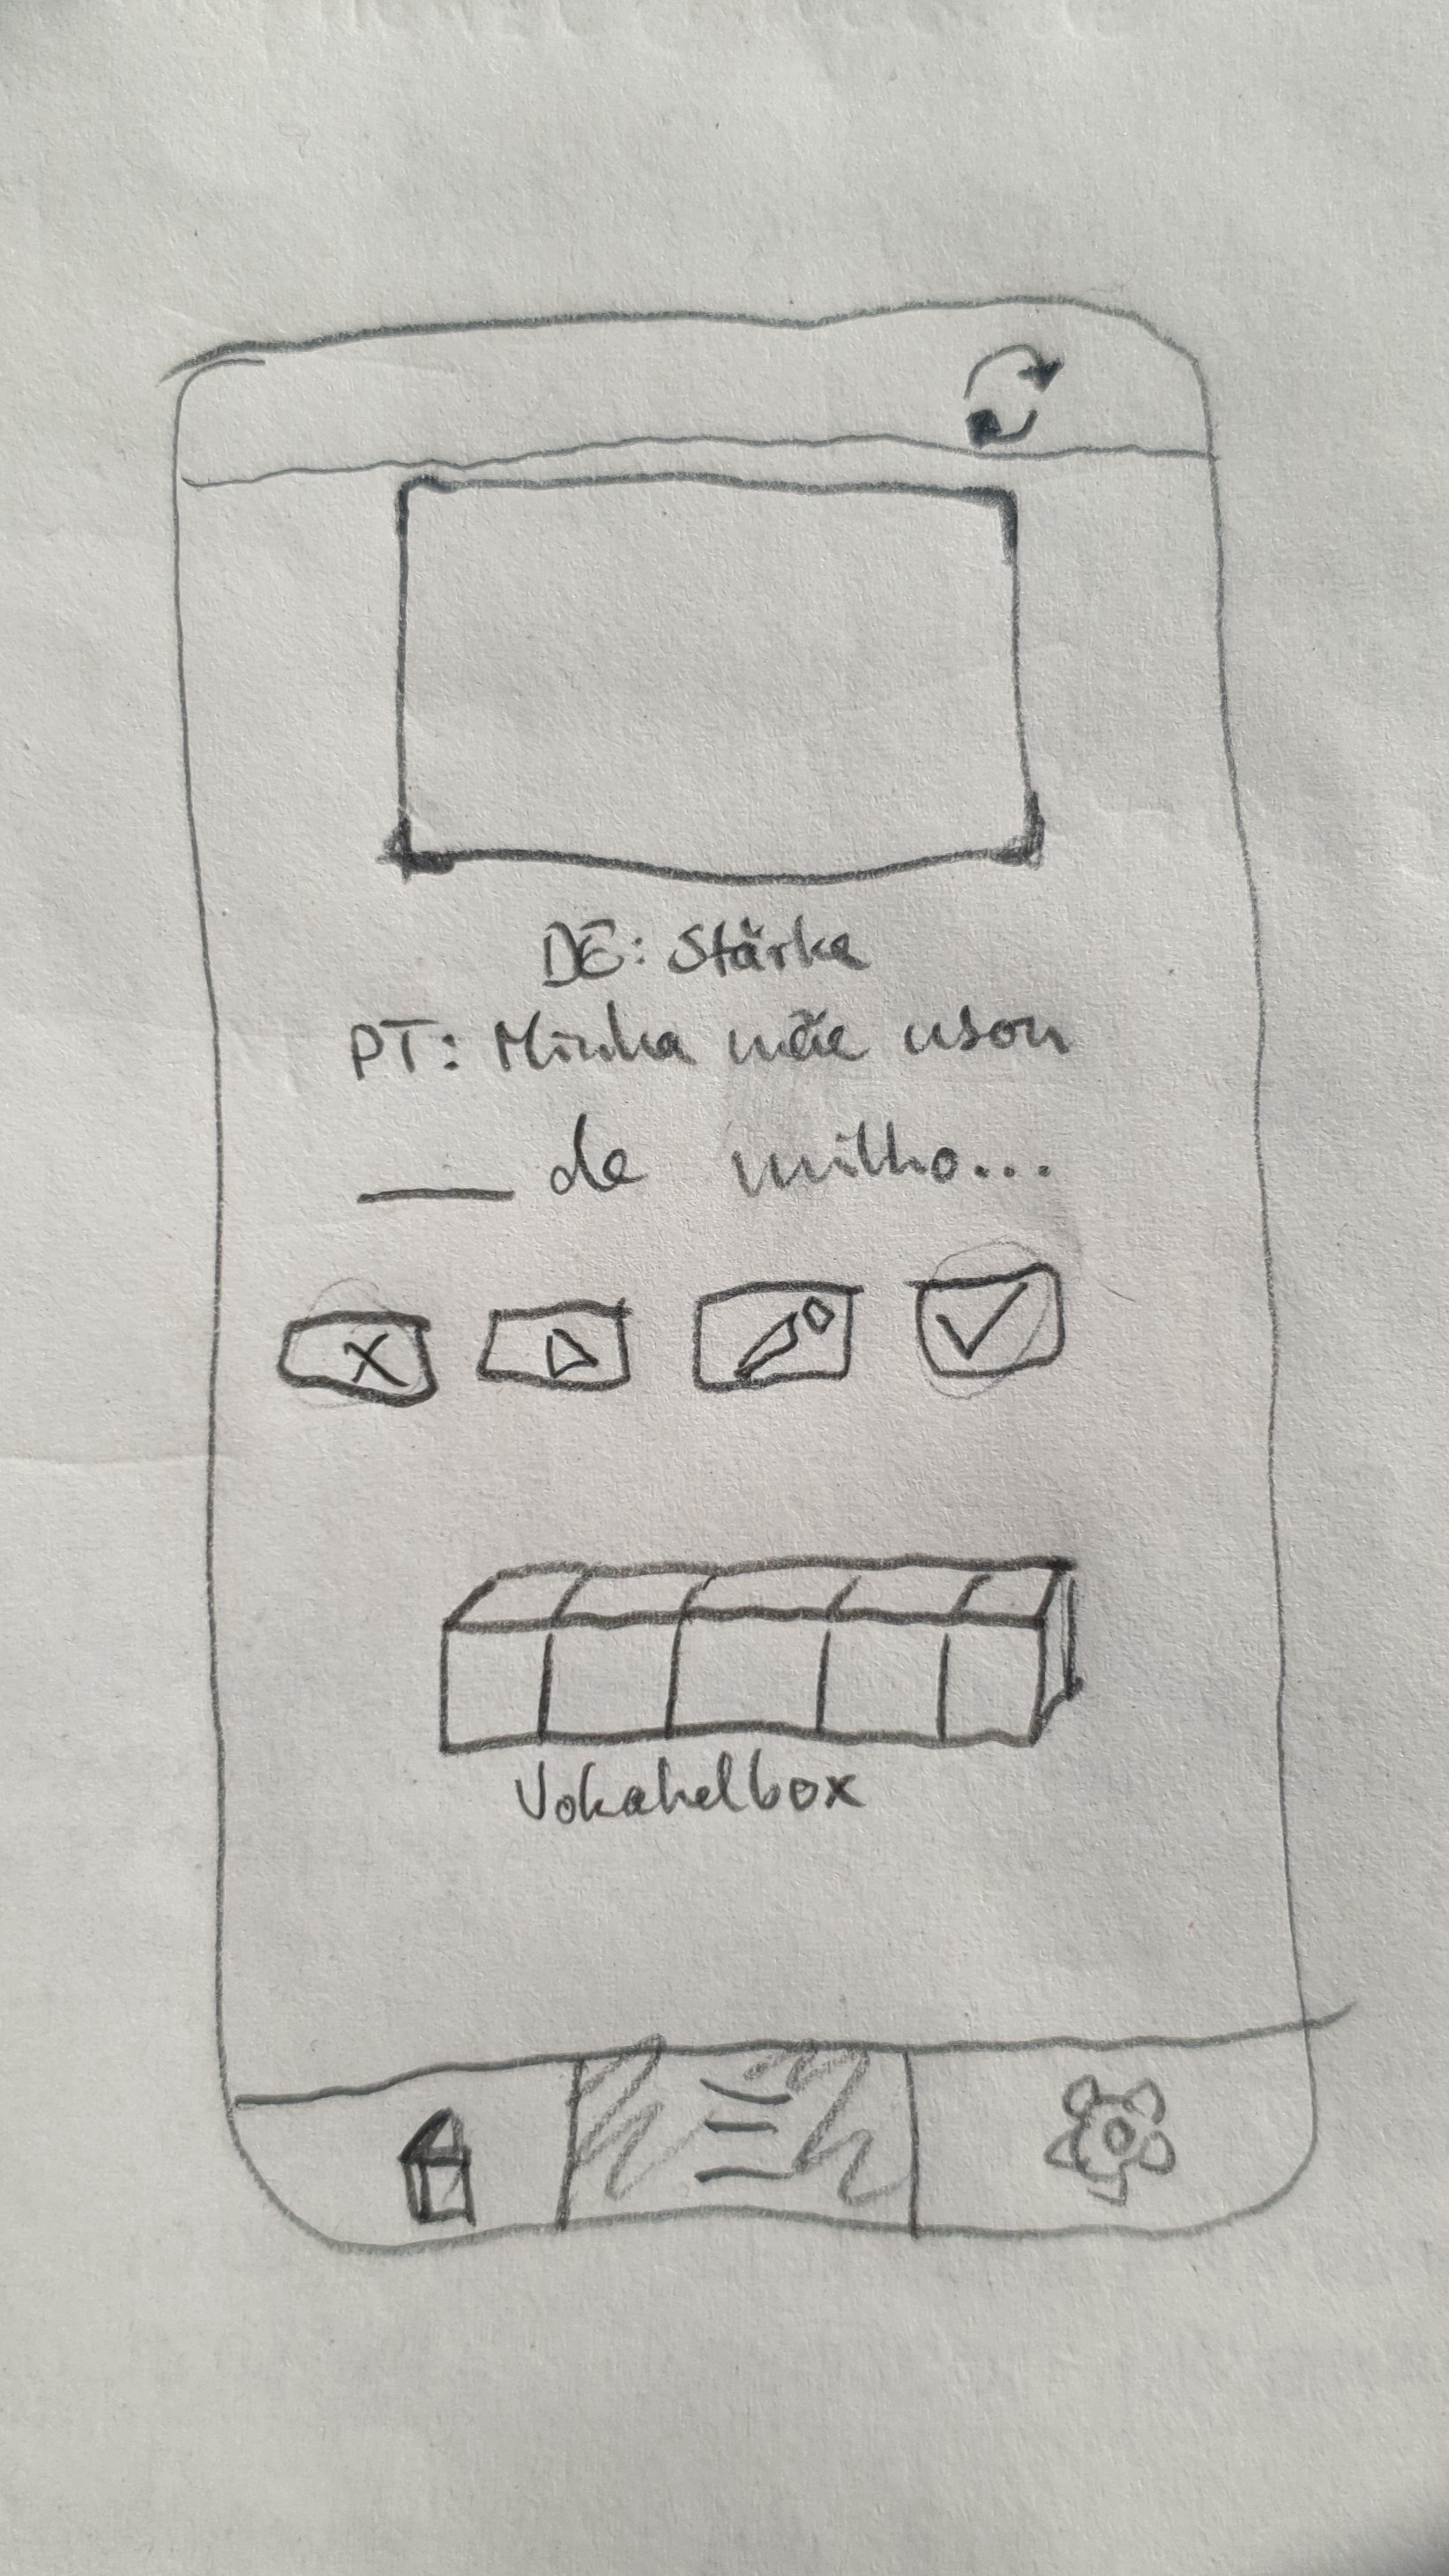 DE: Stärke
PT: Minha mãe usou
___ de milho...
X
Vokabelbox